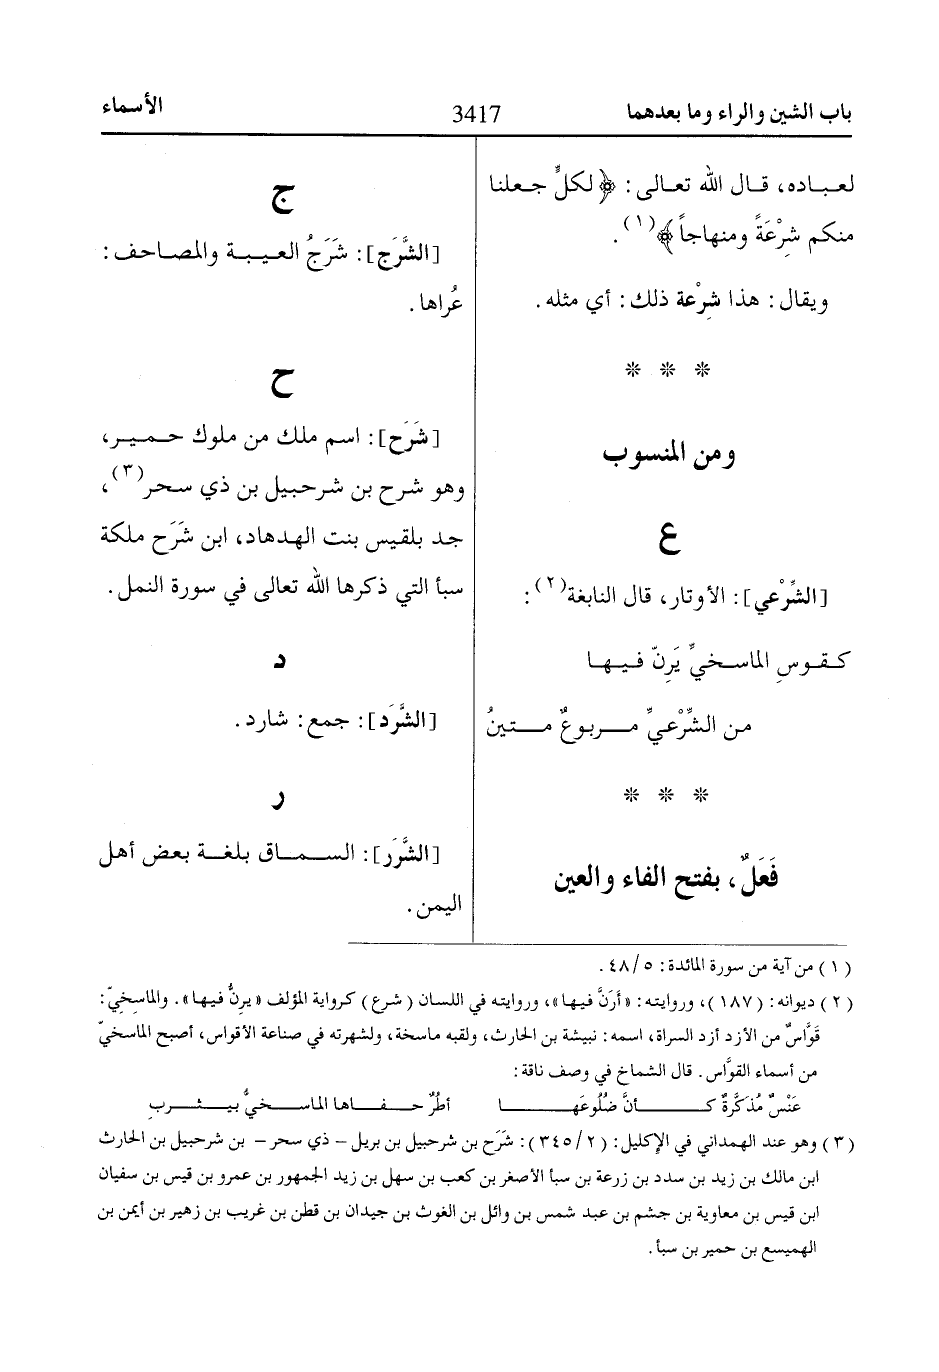 باب الشين والراء وما بعدهما 3417 الأسماء
لعباده، قال الله تعالى: ﴿لكلٍّ جعلنا
منكم شِرْعَةً ومنهاجاً﴾(١).
ويقال: هذا شِرْعة ذلك: أي مثله.
* * *
ومن المنسوب
ع
[الشِّرْعي]: الأوتار، قال النابغة(٢):
كقوسِ الماسخيِّ يَرِنّ فيها
من الشِّرْعيِّ مربوعٌ متينُ
* * *
فَعَلٌ، بفتح الفاء والعين
ج
[الشَّرَج]: شَرَجُ العيبة والمصاحف:
عُراها.
ح
[شَرَح]: اسم ملك من ملوك حمير،
وهو شرح بن شرحبيل بن ذي سحر(٣)،
جد بلقيس بنت الهدهاد، ابن شَرَح ملكة
سبأ التي ذكرها الله تعالى في سورة النمل.
د
[الشَّرَد]: جمع: شارد.
ر
[الشَّرَر]: السماق بلغة بعض أهل
اليمن.
(١) من آية من سورة المائدة: ٤٨/٥.
(٢) ديوانه: (١٨٧)، وروايته: «أرَنَّ فيها»، وروايته في اللسان (شرع) كرواية المؤلف «يرنُّ فيها». والماسِخِيّ:
قَوَّاسٌ من الأزد أزد السراة، اسمه: نبيشة بن الحارث، ولقبه ماسخة، ولشهرته في صناعة الأقواس، أصبح الماسخيّ
من أسماء القوَّاس. قال الشماخ في وصف ناقة:
عَنْسٌ مُذَكَّرةٌ كأنَّ ضُلُوعَها أطُرٌ حفاها الماسخيُّ بيثربِ
(٣) وهو عند الهمداني في الإكليل: (٣٤٥/٢): شَرَح بن شرحبيل بن بريل – ذي سحر – بن شرحبيل بن الحارث
ابن مالك بن زيد بن سدد بن زرعة بن سبأ الأصغر بن كعب بن سهل بن زيد الجمهور بن عمرو بن قيس بن سفيان
ابن قيس بن معاوية بن جشم بن عبد شمس بن وائل بن الغوث بن جيدان بن قطن بن غريب بن زهير بن أيمن بن
الهميسع بن حمير بن سبأ.